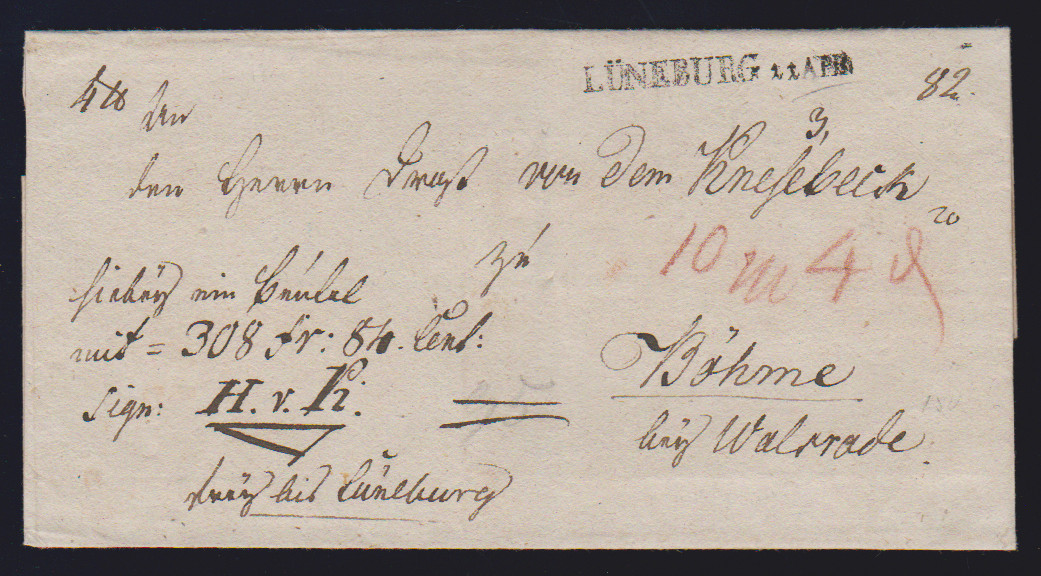 LÜNEBURG 11 APR
82.
4 ℔
An
3,
den Herrn Drost von dem Knesebeck
20
zu
10 m 4 d
hiebey ein Beutel
mit = 308 fr: 84. Cent:
Böhme
sign: H. v. K.
bey Walsrade.
frey bis Lüneburg